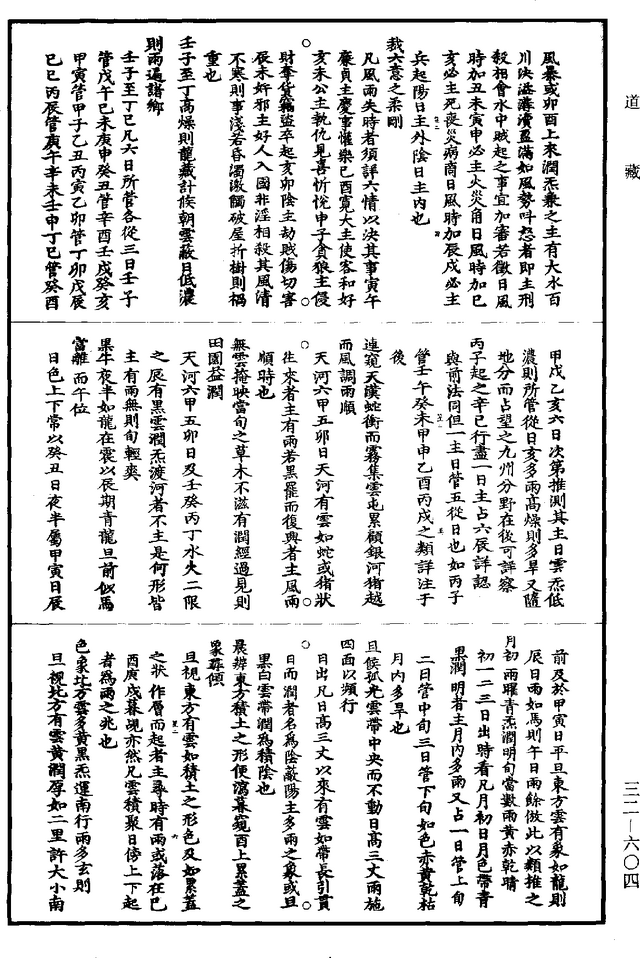 道藏
風暴或卯酉上來潤炁衆之主有大水百
川決溢溝瀆盈滿如風勢叫怒者即主刑
殺相會水中賊起之事宜加審若徵日風
時加丑未寅申必主火災角日風時加巳
亥必主死喪災病商日風時加辰戌必主
兵起陽日主外陰日主內也
裁六意之柔剛
凡風雨失時者須詳六情以決其事寅午
廉貞主慶事懽樂巳酉寬大主使客和好
亥未公主執仇見喜忻悅申子貪狼主侵
財奪貨竊盜卒起亥卯陰主劫賊傷切害
辰未奸邪主好人入國非淫相殺其風清
不寒則事淺若昏濁激觸破屋折掛則禍
重也
壬子至丁高燥則龍藏計候朝雲蔽日低濃
則雨遍諸鄉
壬子至丁巳凡六日所管各從三日壬子
管戊午巳未庚申癸丑管辛酉壬戌癸亥
甲寅管甲子乙丑丙寅乙卯管丁卯戊辰
巳巳丙辰管庚午辛未壬申丁巳管癸酉
甲戌乙亥六日次第推測其主日雲炁低
濃則所管從日亥多雨高燥則多旱又隨
地分而占望之九州分野在後可詳察
丙子起之辛巳行盡一日主占六辰詳認
與前法同但一主日管五從日也如丙子
管壬午癸未甲申乙酉丙戌之類詳注于
後
連窺天漢蛇衡而霧集雲屯累顧銀河猪越
而風調雨順
天河六甲五卯日天河有雲如蛇或猪狀
往來者主有雨若黑罷而復興者主風雨
順時也
無雲掩映當旬之草木不滋有潤經過見則
田園益潤
天河六甲五卯日及壬癸丙丁水火二限
之辰有黑雲潤炁渡河者不主是何形皆
主有雨無則旬輕爽
果牛夜半如龍在震以辰期青龍旦前似馬
當離而午位
日色上下常以癸丑日夜半屬甲寅日辰
前及於甲寅日平旦東方雲有象如龍則
辰日雨如馬則午日雨餘倣此以類推之
月初雨曜青炁潤明旬當數雨黃赤乾晴
初一二三日出時看凡月初日月色帶青
黑潤明者主月內多雨又占一日管上旬
二日管中旬三日管下旬如色赤黃乾枯
月內多旱也
旦候孤光雲帶中央而不動日高三丈雨施
四面以頻行
日出凡日高三丈以來有雲如帶長引貫
日而潤者名為陰蔽陽主多雨之象或旦
黑白雲帶潤為積陰也
晨辨東方積土之形便瀉暮窺酉上累蓋之
象靡傾
旦視東方有雲如積土之形色及如累蓋
之狀作層而起者主尋時有雨或落在巳
酉庚戌暮覘亦然凡雲積聚日傍上下起
者為雨之兆也
色象北方雲多黃黑炁運南行雨多玄則
旦視北方有雲黃潤厚如二里許大小南
三二—六〇四